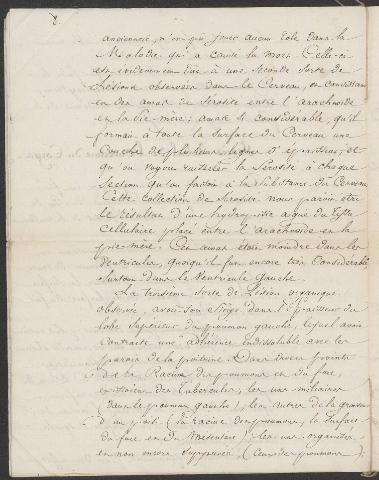 8.
ancienneté, n'ont pu jouer aucun Rôle dans la
Maladie qui a causé la mort. Celle-ci
est évidemment due à une Seconde Sorte de
Lésions observées dans le Cerveau, et consistant
en des amas de Sérosité entre l'arachnoïde
et la pie-mère; amas si considérable, qu'il
formait à toute la surface du Cerveau une
Couche de plusieurs lignes d'épaisseur, et
qu'on voyait ruisseler la Sérosité à chaque
Section qu'on faisait à la Substance du Cerveau.
Cette Collection de Sérosité nous paroit être
le résultat d'une hydropisie aigue du tissu
Cellulaire placé entre l'arachnoïde et la
pie-mère. Cet amas étoit moindre dans les
Ventricules, quoiqu'il fut encore très Considérable
surtout dans le Ventricule Gauche.
La troisième Sorte de Lésion organique
observée, avoit son Siège dans l'Epaisseur du
lobe Supérieur du poumon gauche, lequel avoit
Contracté une adhérence indissoluble avec les
parois de la poitrine. Dans divers points
de la Racine du poumon et du foie,
existoient des Tubercules, les uns miliaires
(dans le poumon gauche), les autres de la grosseur
d'un pois (la Racine des poumons, la Surface
du foie et du Mésentère); les uns organisés
et non encore Suppurés, (Ceux des poumons),